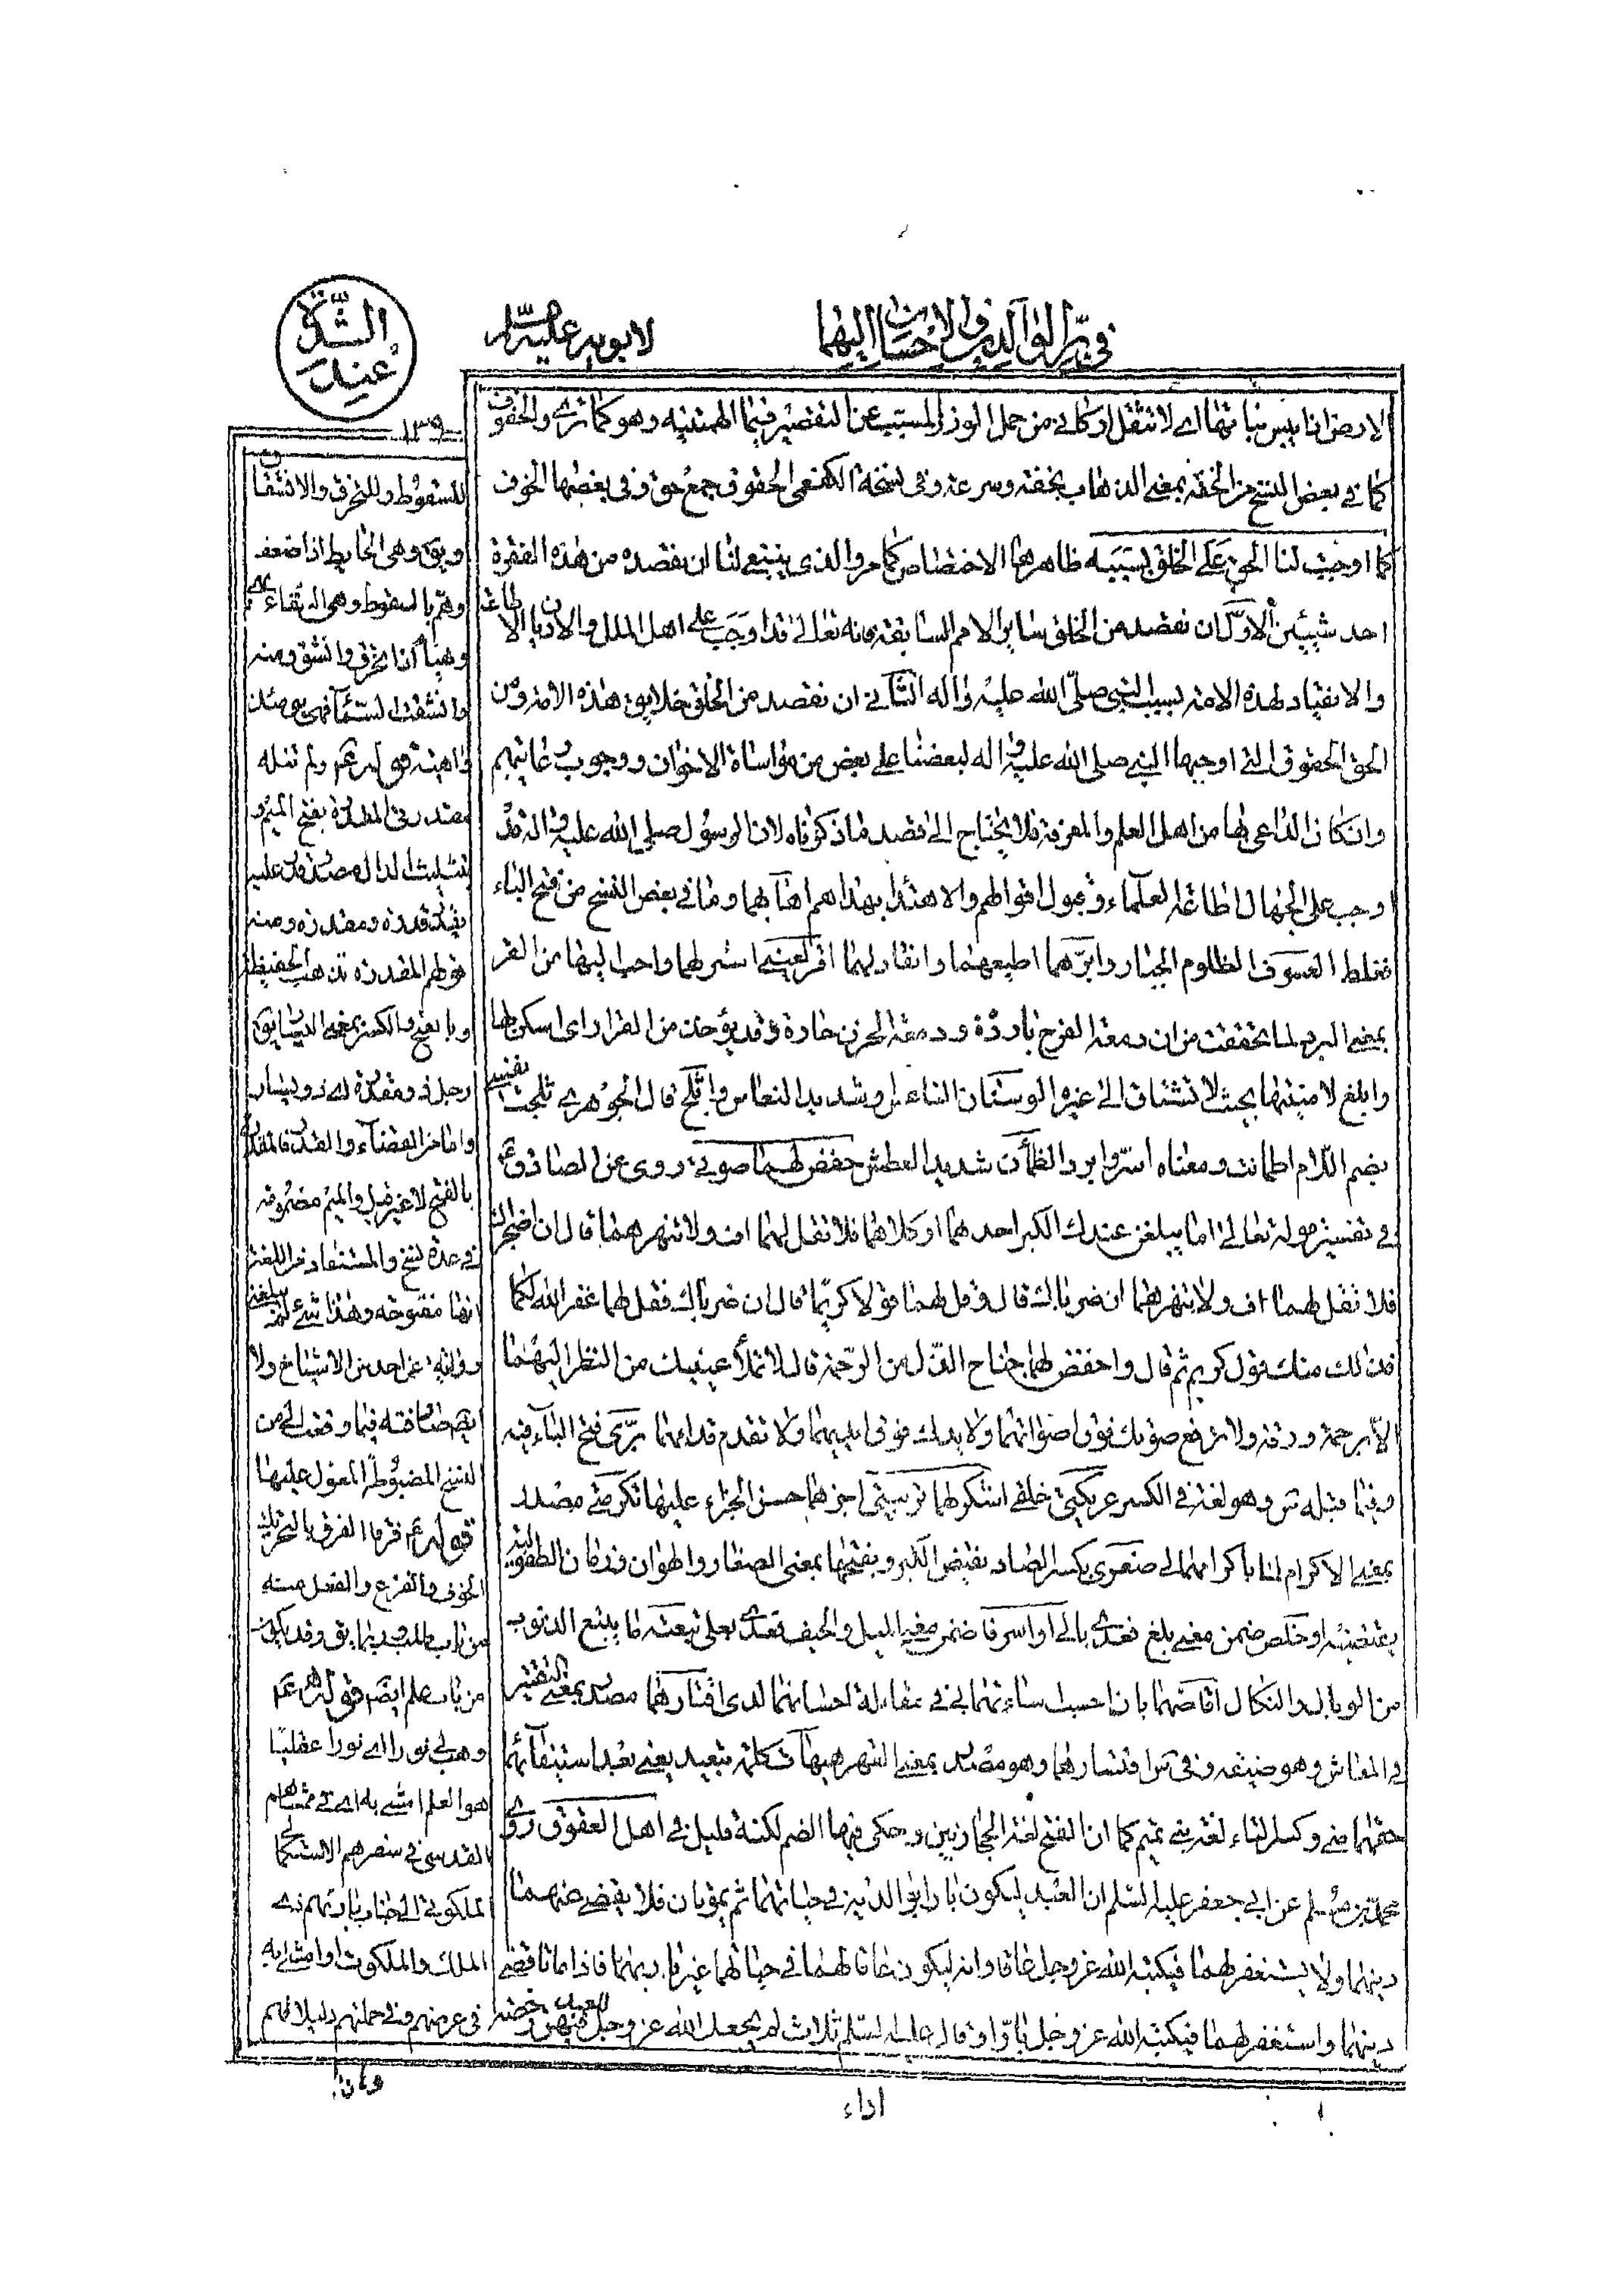 في بر الوالدين والاحسان اليهما
لابويه عليهم السلام
عند الشدة
١٣٩
الارض اذا يبس نباتها اي لا تثقل اركاني من حمل الوزر المسبب عن التقصير فيما الهمتنيه وهو كما ترى والحفوف
كما في بعض النسخ من الخفة بمعنى الذهاب بخفته وسرعة وفي نسخة الكفعمي الحقوق جمع حق وفي بعضها الخوف
كما اوجبت لنا الحق على الخلق بسببه ظاهرهما الاختصاص كما مر والذي ينبغي لنا ان نقصده من هذه الفقرة
احد شيئين الاول ان نقصد من الخلق ساير الامم السابقة فانه تعالى قد اوجب على اهل الملل والاديان الاطاعة
والانقياد لهذه الامة بسبب النبي صلى الله عليه واله الثاني ان نقصد من الخلق خلايق هذه الامة ومن
الحق الحقوق التي اوجبها النبي صلى الله عليه واله لبعضنا على بعض من مواساة الاخوان ووجوب رعايتهم
وان كان الداعي بها من اهل العلم والمعرفة فلا يحتاج الى قصد ما ذكرناه لان الرسول صلى الله عليه واله قد
وجب على الجهال اطاعة العلماء وقبول اقوالهم والاهتداء بهداهم اهابهما وما في بعض النسخ من فتح الباء
فغلط العسوف الظلوم الجبار وابرهما اطيعهما وانقاد لهما اقر لعيني اسر لهما واحب اليهما من القر
بمعنى البرد لما تحققت من ان دمعة الفرح باردة ودمعة الحزن حارة وقد يؤخذ من القرار اي اسكن لها
وابلغ لامنيتها بحيث لا تشتاق الى غيره الوسنان الناعس او شديد النعاس واثلج قال الجوهري ثلجت نفسي
بضم اللام اطمانت ومعناه اسر وابرد الظمآن شديد العطش خفض لهما صوتي روى عن الصادق ع
في تفسير قوله تعالى اما يبلغن عندك الكبر احدهما او كلاهما فلا تقل لهما اف ولا تنهرهما قال ان اضجراك
فلا تقل لهما اف ولا تنهرهما ان ضرباك قال وقل لهما قولا كريما قال ان ضرباك فقل لهما غفر الله لكما
فذلك منك قول كريم ثم قال واخفض لهما جناح الذل من الرحمة قال لا تملأ عينيك من النظر اليهما
الا برحمة ورقة ولا ترفع صوتك فوق اصواتهما ولا يدك فوق ايديهما ولا تقدم قدامهما برى فتح الباء فيه
وفيما قبله س وهو لغة في الكسر عريكتي خلقي اشكر لهما تربيتي اجزهما حسن الجزاء عليها تكرمتي مصدر
بمعنى الاكرام لنا باكرامهما لي صغري بكسر الصاد نقيض الكبر وبفتحها بمعنى الصغار والهوان وزمان الطفولية
يقتضيه او خلص ضمن معنى بلغ فعدى بالى او اسرفا ضمن معنى الميل والحيف فعدى بعلى تبعته ما يتبع الذنوب
من الوبال والنكال اقاصهما بان احسب اساءتهما بي في مقابلة احسانهما لدي اقتارهما مصدر بمعنى التقتير
في المعاش وهو ضيقه وفي س اقتسارهما وهو مصدر بمعنى القهر هيهات كلمة تبعيد يعني بعد استيفائهما
حقهما مني وكسر التاء لغة بني تميم كما ان الفتح لغة الحجازيين وحكى فيها الضم لكنه قليل في اهل العقوق روى
محمد بن مسلم عن ابي جعفر عليه السلم ان العبد ليكون بارا بوالديه في حياتهما ثم يموتان فلا يقضي عنهما
دينهما ولا يستغفر لهما فيكتبه الله عز وجل عاقا وانه ليكون عاقا لهما في حياتهما غير بار بهما فاذا ماتا قضى
دينهما واستغفر لهما فيكتبه الله عز وجل بارا وقال عليه السلم ثلاث لم يجعل الله عز وجل فيهن رخصة
اداء
للسقوط والتخرق والانشقاق
ويق وهى الحايط اذا ضعف
وهم بالسقوط وهى السقاء
وهيا اذا تخرق وانشق ومنه
وانشقت السماء فهي يومئذ
واهية قوله ع ولم تنله
مقدرتي المقدرة بفتح الميم و
بتثليث الدال مصدر قدر عليه
يقدر قدرة ومقدرة ومنه
قولهم المقدرة تذهب الحفيظة
وبالفتح والكسر بمعنى اليسار يق
رجل ذو مقدرة اي ذو يسار
واما من القضاء والقدر فالمقدرة
بالفتح لا غير قيل والميم مضمومة
في عدة نسخ والمستفاد من اللغة
انها مفتوحة وهذا شيء لم يبلغني
روايته عن احد من الاشياخ ولا
الينسخ المضبوطة المعول عليها
قوله ع فرقا الفرق بالتحريك
الخوف والفزع والفعل منه
من باب علم ايضا قوله ع
وهب لي نورا اي نورا عقليا
هو العلم امشي به اي في ممشاهم
القدسي في سفرهم الاستكمالي
الملكوتي الى جناب بارئهم ذي
الملك والملكوت او امشي به
في عرضهم وفي جملتهم دليلا لهم